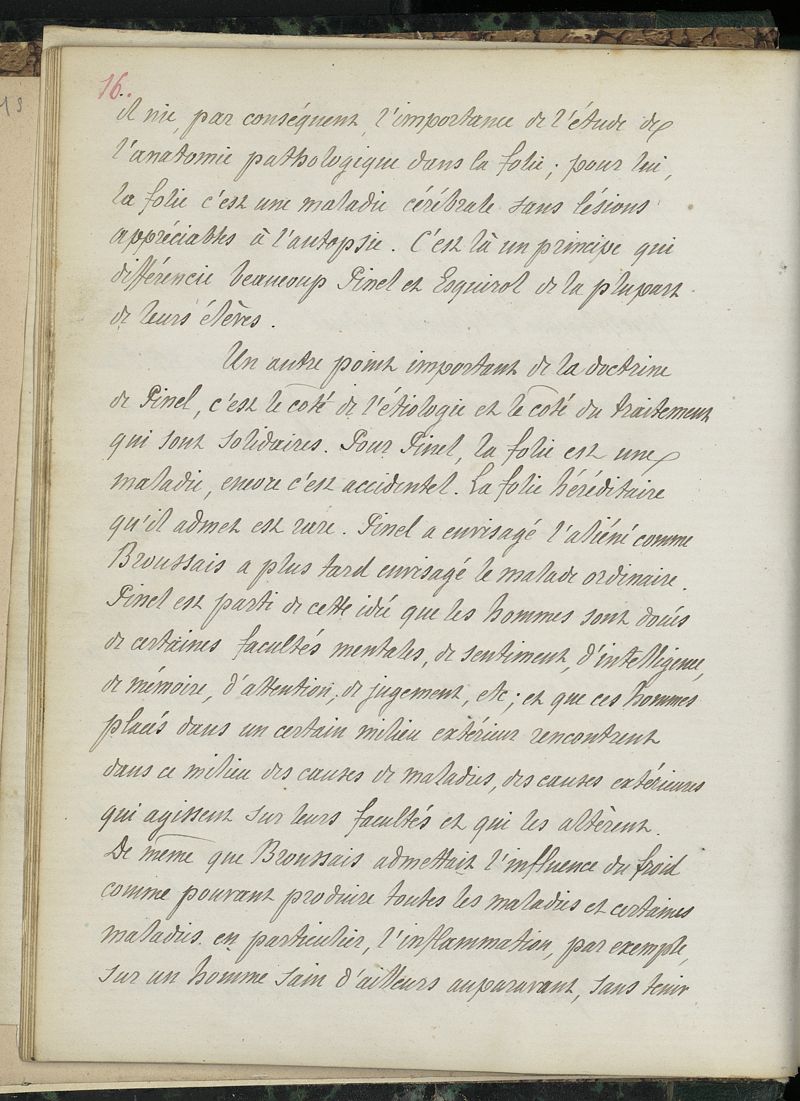 16.
il nie, par conséquent, l'importance de l'étude de
l'anatomie pathologique dans la folie ; pour lui,
la folie c'est une maladie cérébrale sans lésions
appréciables à l'autopsie. C'est là un principe qui
différencie beaucoup Pinel et Esquirol de la plupart
de leurs élèves.
Un autre point important de la doctrine
de Pinel, c'est le coté de l'étiologie et le coté du traitement
qui sont solidaires. Pour Pinel, la folie est une
maladie, encore c'est accidentel. La folie héréditaire
qu'il admet est rare. Pinel a envisagé l'aliéné comme
Broussais a plus tard envisagé le malade ordinaire.
Pinel est parti de cette idée que les hommes sont doués
de certaines facultés mentales, de sentiment, d'intelligence,
de mémoire, d'attention, de jugement, etc ; et que ces hommes
placés dans un certain milieu extérieur rencontrent
dans ce milieu des causes de maladies, des causes extérieures
qui agissent sur leurs facultés et qui les altèrent.
De même que Broussais admettait l'influence du froid
comme pouvant produire toutes les maladies et certaines
maladies en particulier, l'inflammation, par exemple,
sur un homme sain d'ailleurs auparavant, sans tenir